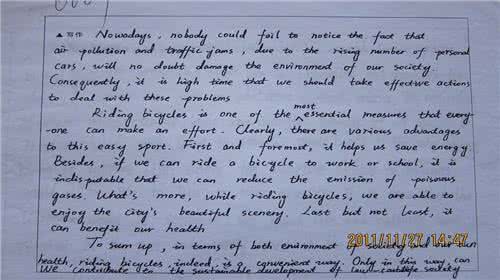 ▲写作 Nowadays, nobody could fail to notice the fact that
air pollution and traffic jams, due to the rising number of personal
cars, will no doubt damage the environment of our society.
Consequently, it is high time that we should take effective actions
to deal with these problems
Riding bicycles is one of the most essential measures that every-
-one can make an effort. Clearly, there are various advantages
to this easy sport. First and foremost, it helps us save energy
Besides, if we can ride a bicycle to work or school, it is
indisputable that we can reduce the emission of poisonous
gases. What's more, while riding bicycles, we are able to
enjoy the city's beautiful scenery. Last but not least, it
can benefit our health
To sum up, in terms of both environment of society and
health, riding bicycles, indeed, is a convenient way. Only in this way, can
we contribute to the sustainable development of
2011/11/27 14:47